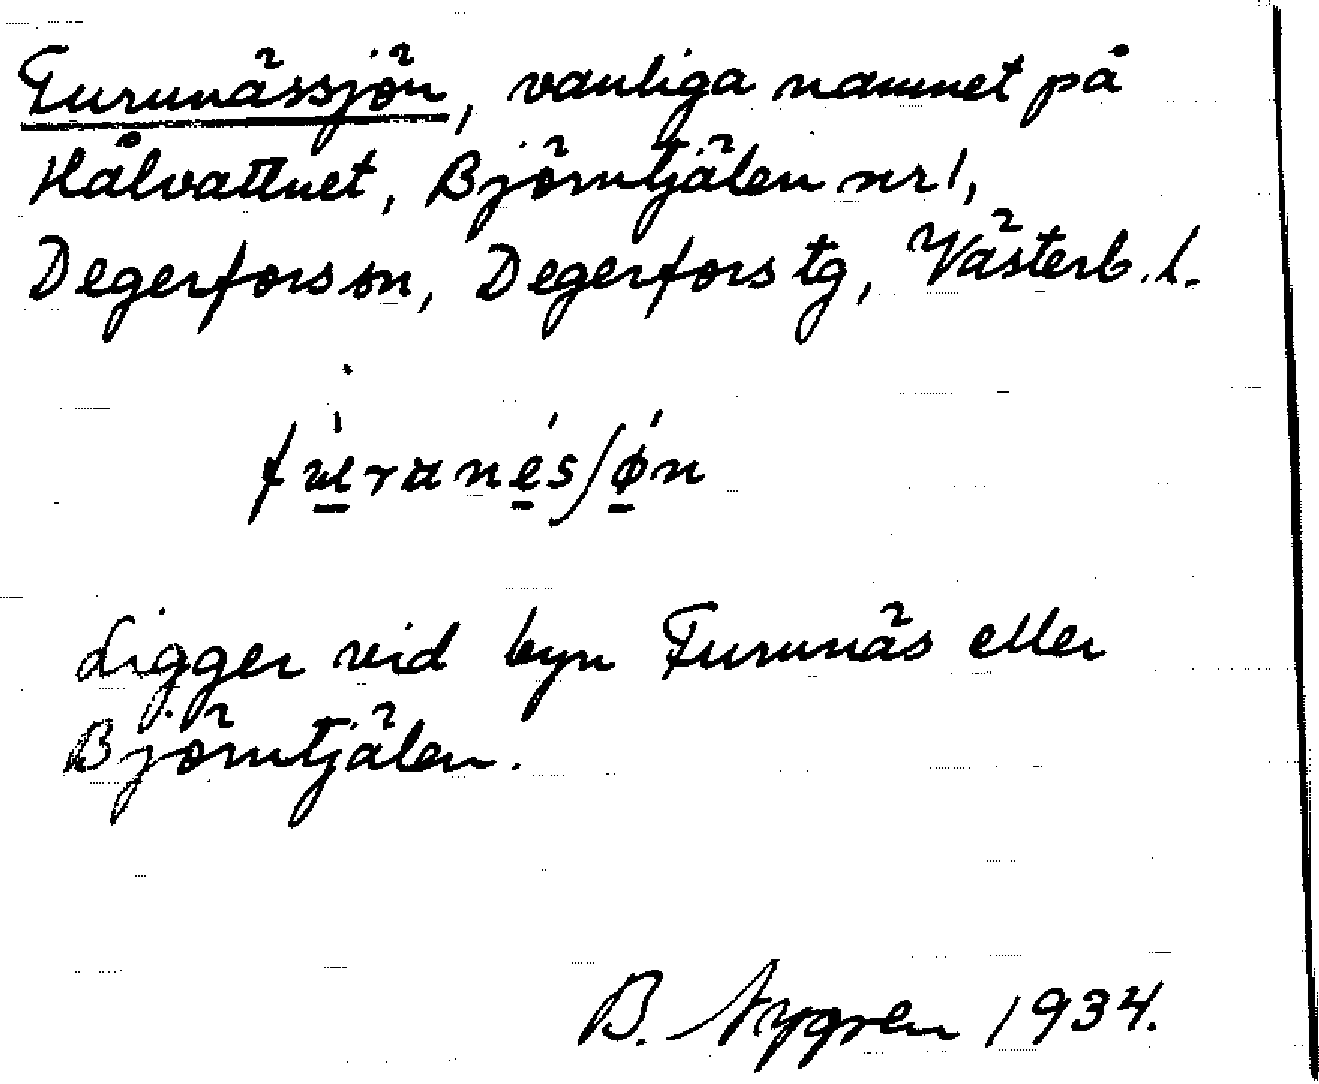 Furunässjön, vanliga namnet på
Hålvattnet, Björntjälen nr 1,
Degerfors sn, Degerfors tg, Västerb. l.
furanesʃøn
Ligger vid byn Furunäs eller
Björntjälen.
B. Nygren 1934.